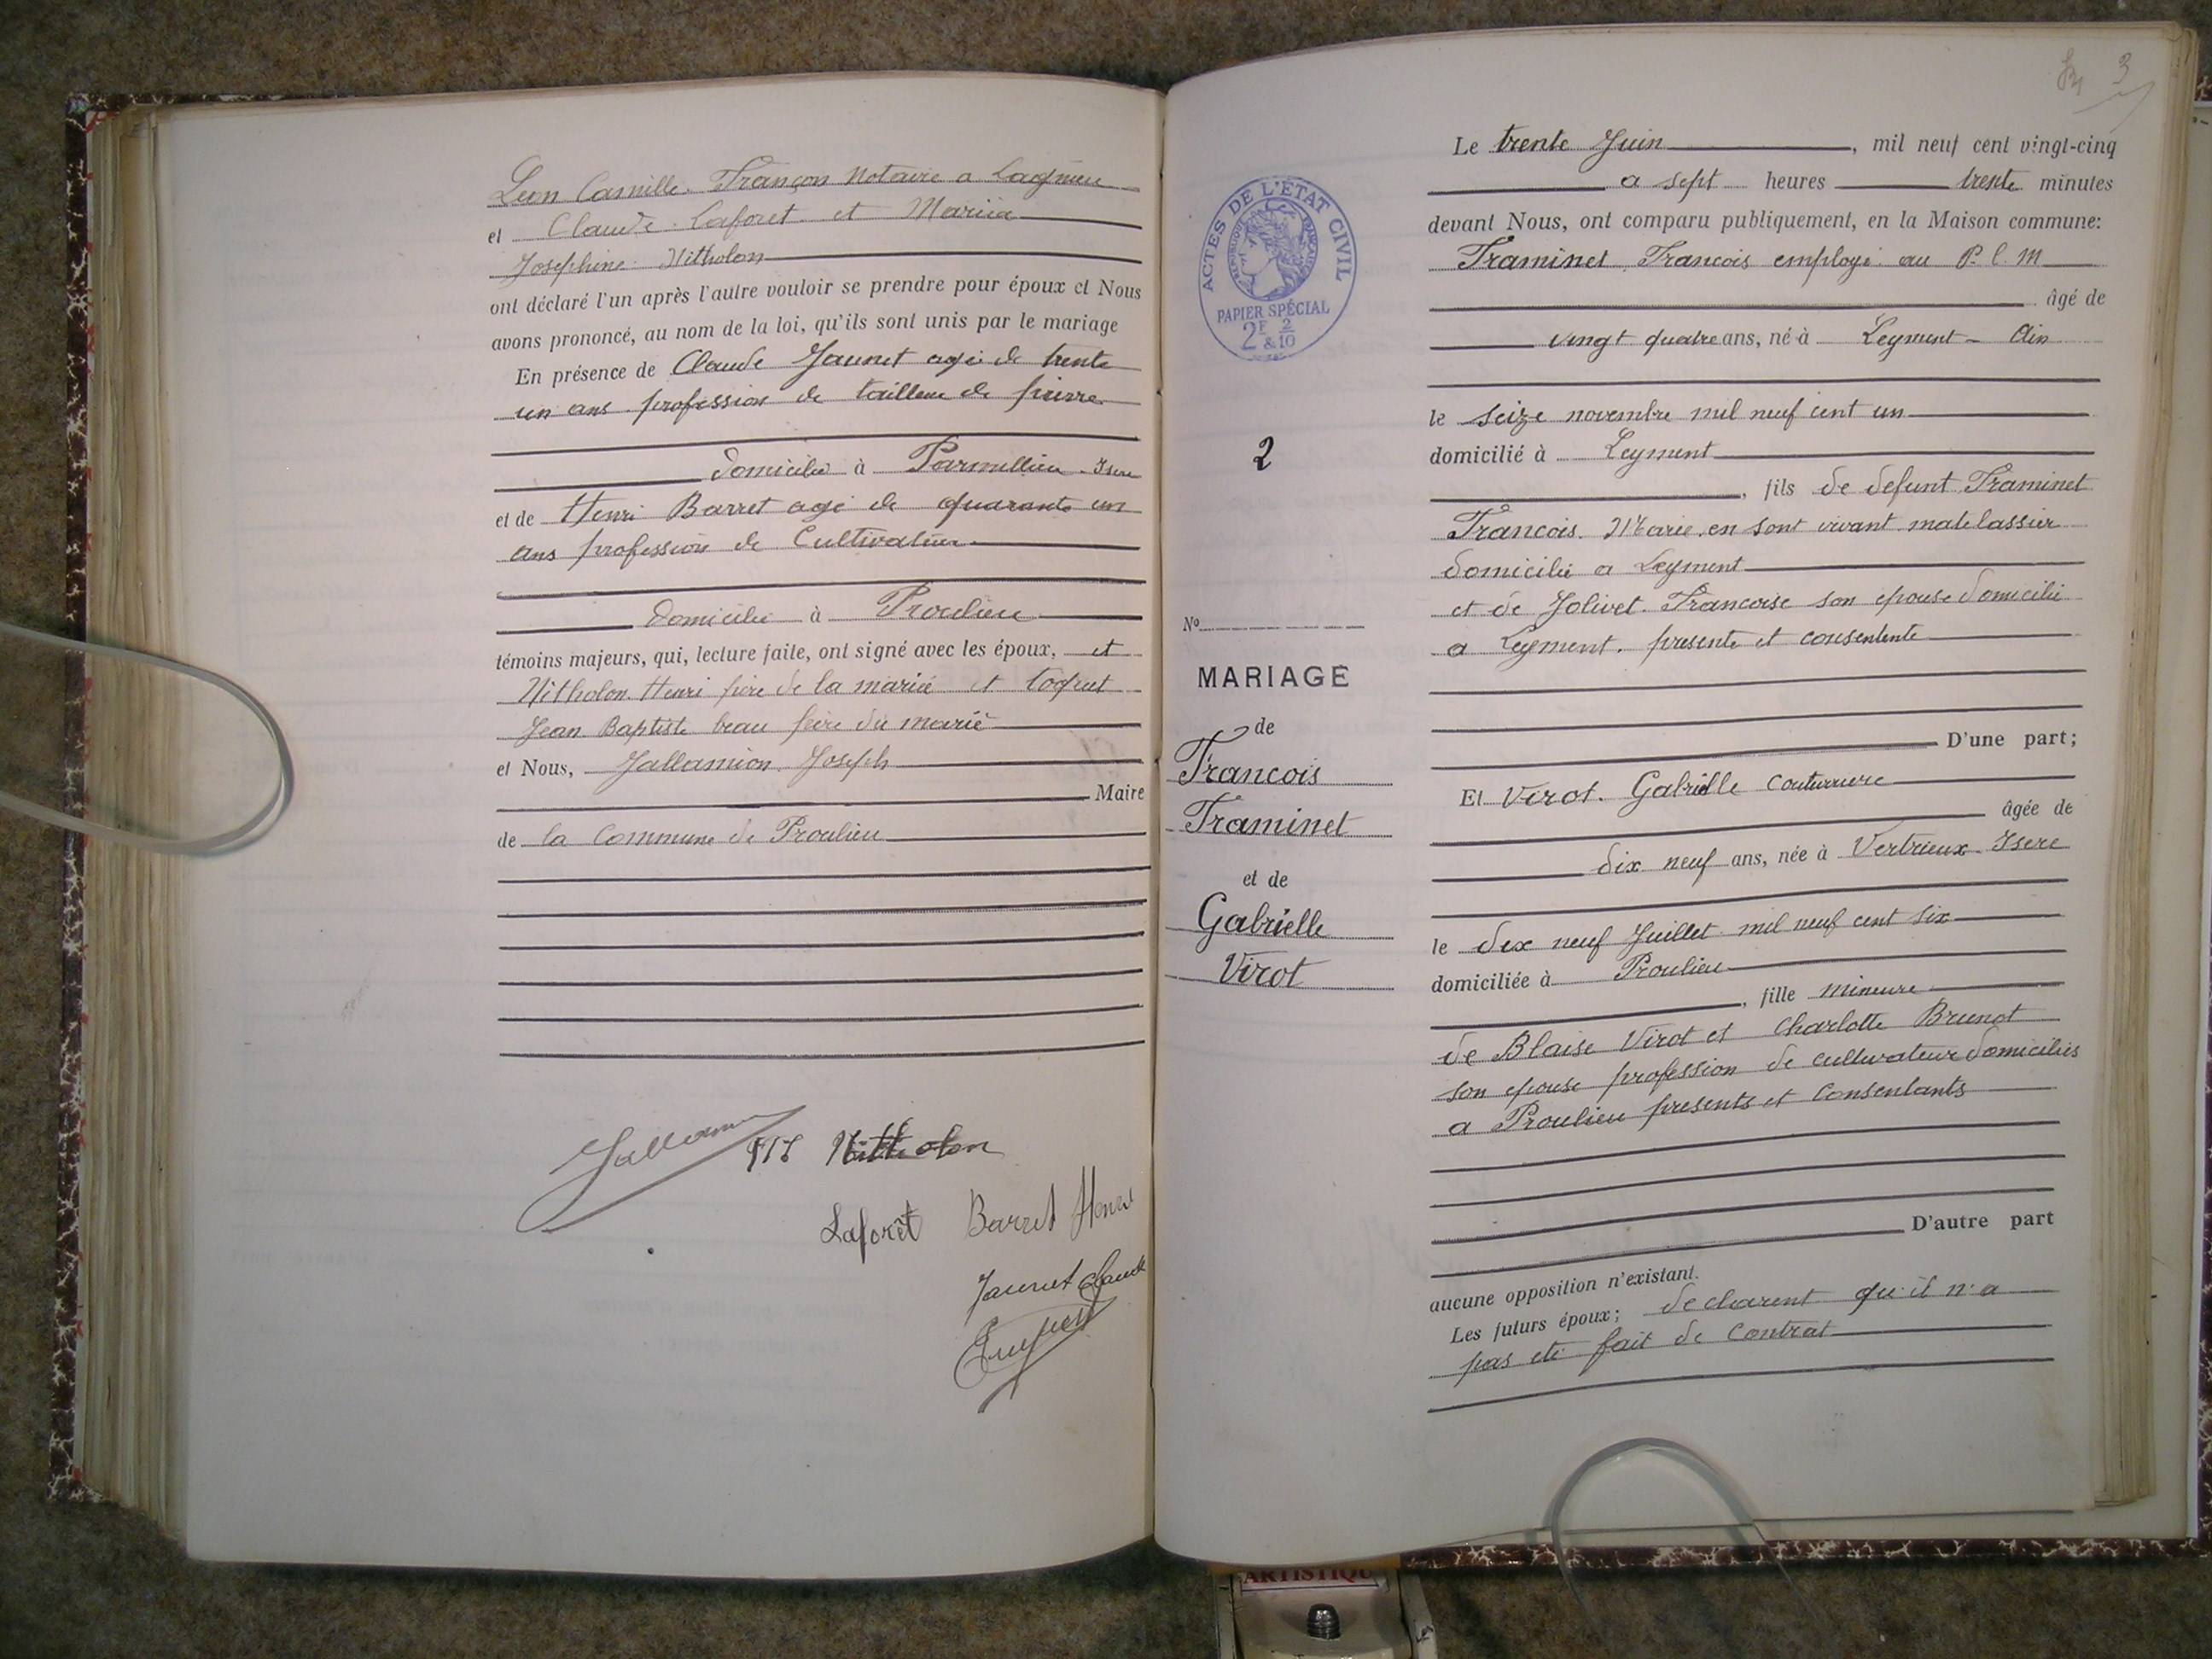 Léon Camille. Françon Notaire a Lagnieu
et Claude. Laforet et Mariia
Josephine Nitholon
ont déclaré l'un après l'autre vouloir se prendre pour époux et Nous
avons prononcé, au nom de la loi, qu'ils sont unis par le mariage
En présence de Claude Jaunet agé de trente
un ans profession de tailleur de pierre
domicilié à Parmillieu. Isere
et de Henri Barret agé de quarante un
ans profession de Cultivateur
domicilié à Proulieu
témoins majeurs, qui, lecture faite, ont signé avec les époux, et
Nitholon Henri père de la marieé et Coquet
Jean Baptiste beau père du marié
et Nous, Jallamion Joseph
Maire
de la Commune de Proulieu
Jallamion MJ Nitholon
Laforêt Barret Henri
Jaunet Claude
3
Le trente Juin, mil neuf cent vingt-cinq
a sept heures trente minutes
devant Nous, ont comparu publiquement, en la Maison commune:
Traminet Francois employé au P. l. M
âgé de
vingt quatre ans, né à Leyment - Ain
le seize novembre mil neuf cent un
domicilié à Leyment
, fils de defunt Traminet
Francois. Marie en sont vivant matelassier
domicilié a Leyment
et de Jolivet. Francoise son epouse domicilié
a Leyment. presente et consentente
D'une part;
Et Virot. Gabrielle Couturiere
âgée de
dix neuf ans, née à Vertrieux. Isere
le dix neuf Juillet mil neuf cent six
domiciliée à Proulieu
, fille mineure
de Blaise Virot et Charlotte Brunot
son epouse profession de cultivateur domiciliés
a Proulieu presents et consentants
D'autre part
aucune opposition n'existant.
Les futurs époux; declarent qu'il n'a
pas eté fait de Contrat
ACTES DE L'ÉTAT CIVIL
RÉPUBLIQUE FRANÇAISE
PAPIER SPÉCIAL
2F & 2/10
2
No
MARIAGE
de
Francois
Traminet
et de
Gabrielle
Virot
ARTISTIQU